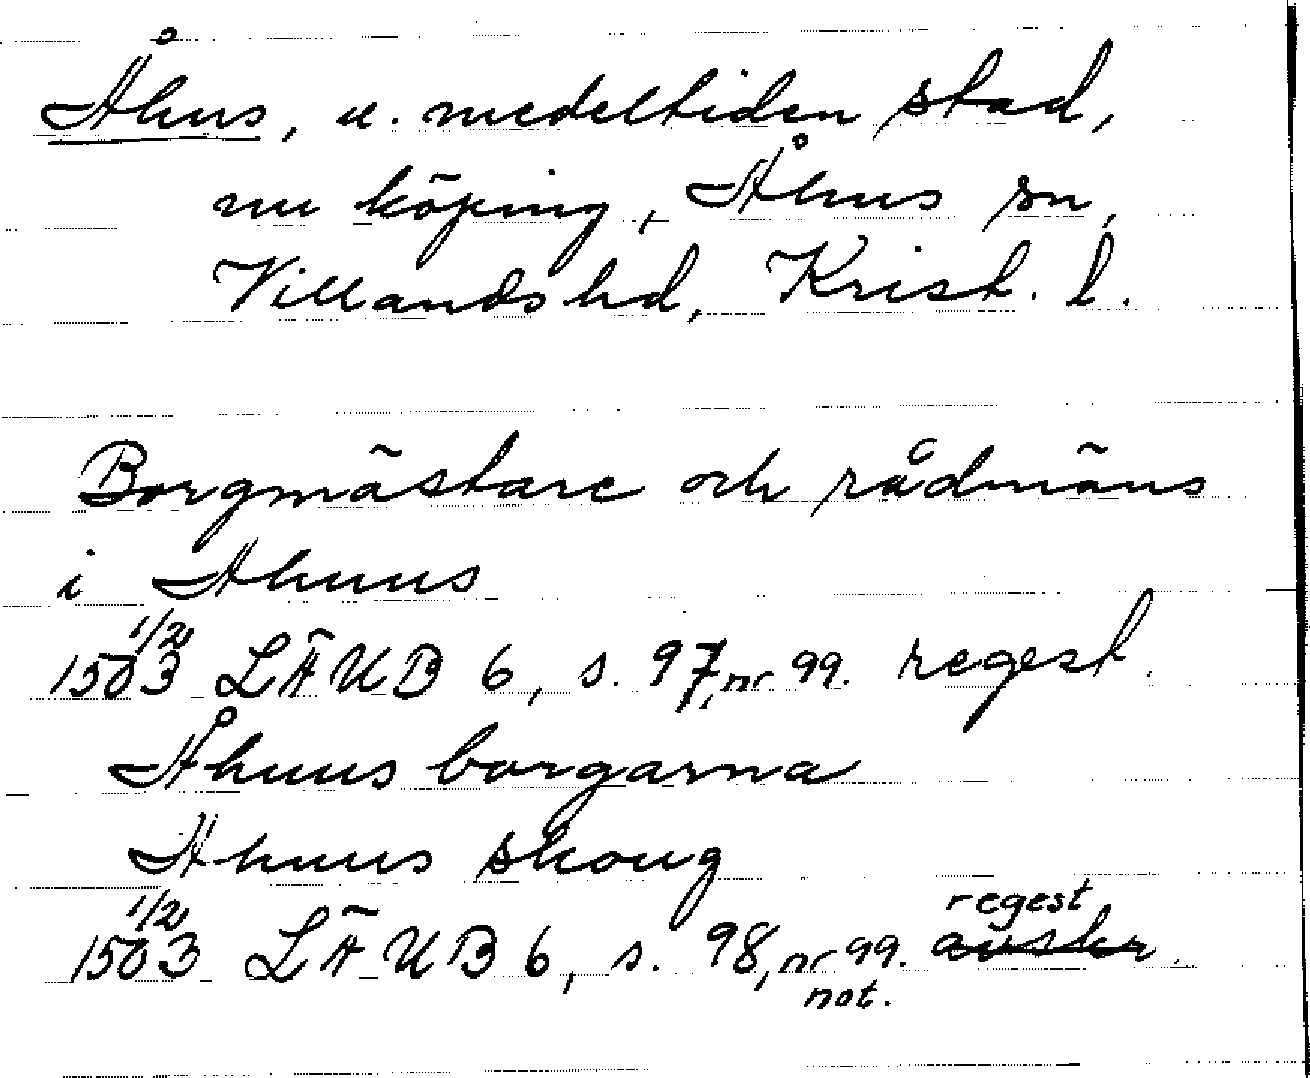 Åhus, u. medeltiden stad,
nu köping, Åhus sn,
Villands hd, Krist. l.
Borgmästare och rådmäns
i Ahuus
1503 1/2 LÄUB 6, s. 97, nr 99. regest.
Åhuus borgarna
Ahuus skoug
regest
1503 1/2 LÄUB 6, s. 98, nr 99. avskr.
not.